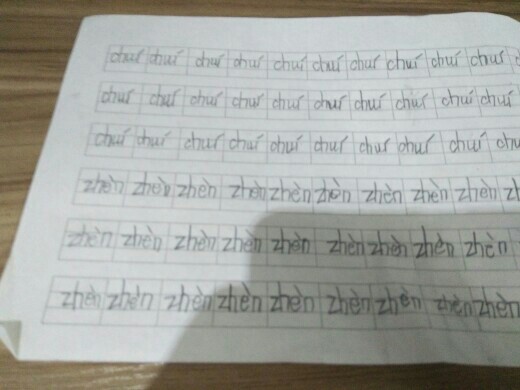 chuí chuí chuí chuí chuí chuí chuí chuí chuí chuí
chuí chuí chuí chuí chuí chuí chuí chuí chuí chuí
chuí chuí chuí chuí chuí chuí chuí chuí chuí
zhèn zhèn zhèn zhèn zhèn zhèn zhèn zhèn zhèn
zhèn zhèn zhèn zhèn zhèn zhèn zhèn zhèn zhèn
zhèn zhèn zhèn zhèn zhèn zhèn zhèn zhèn zhèn